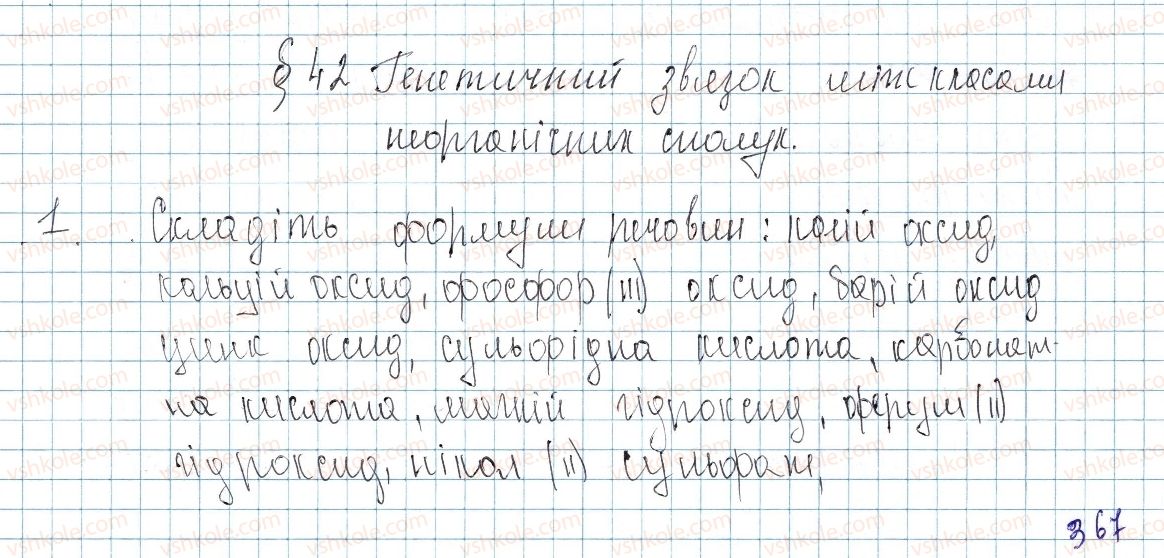 § 42 Генетичний звязок між класами
неорганічних сполук.
1. Складіть формули речовин: калій оксид,
кальцій оксид, фосфор (III) оксид, барій оксид
цинк оксид, сульфідна кислота, карбонат-
на кислота, магній гідроксид, ферум (II)
гідроксид, нікол (II) сульфат,
367